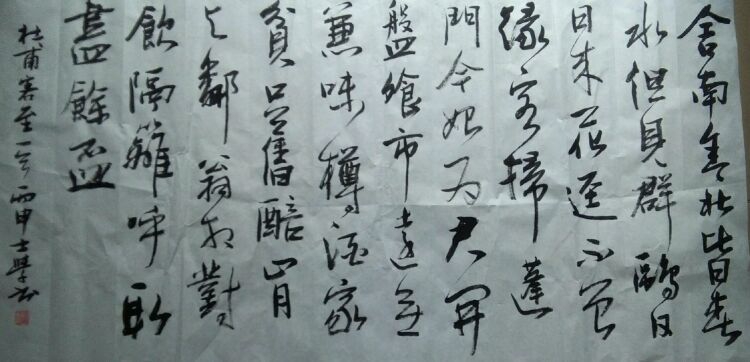 舍南舍北皆春
水但見群鷗日
日來花逕不曾
緣客掃蓬
門今始为君開
盤飧市遠無
兼味樽酒家
貧只舊醅肯
与鄰翁相對
飲隔籬呼取
盡餘盃
杜甫客至一首丙申士學书